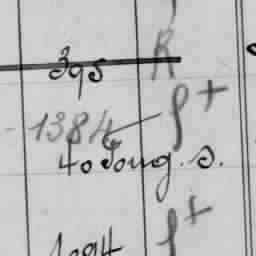 395 R
1384 f+
40 Dong. s.
1094 f+